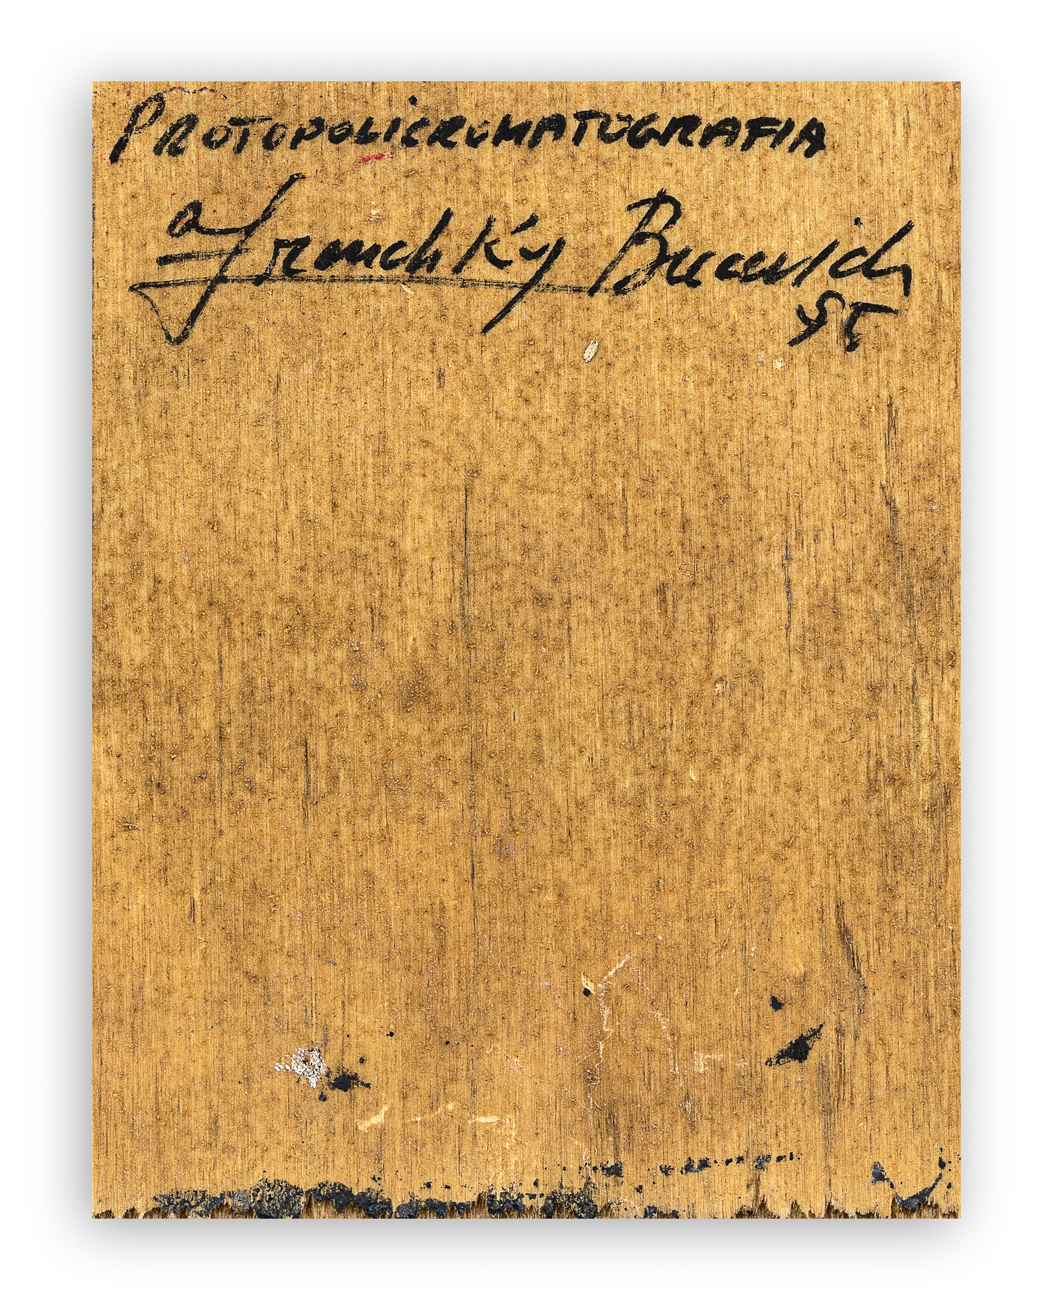 PROTOPOLICROMATOGRAFIA
a FranchKy Bucevich
95